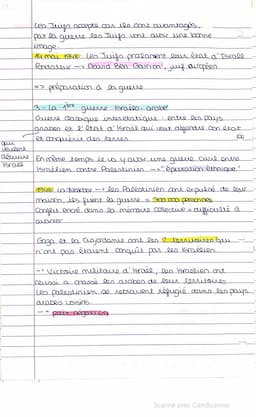 Les Juifs accepte car ils sont avantagés,
par la guerre les Juifs vont avoir une bonne
image.
14 mai 1948: Les Juifs proclament leur État d'Israël
Fondateur --> David Ben Gourion, juif européen
=> préparation à la guerre
3 - La 1ère guerre israélo-arabe
Guerre classique interétatique: entre les pays
arabes et l'État d'Israël qui veut défendre son état
et conquérir des terres.
qui
veulent
détruire
Israël
En même temps il va y avoir une guerre civil entre
Israélien contre Palestinien --> "épuration ethnique"
1948: --> les Palestinien ont expulsé de leur
maison, ils fuient la guerre = 900 000 personnes
Conflit ancré dans la mémoire collective = difficulté à
Gaza et la Cisjordanie sont les 2 territoires qui
n'ont pas étaient conquit par les Israélien.
--> Victoire militaire d'Israël, les Israélien ont
réussi à chassé les arabes de leur territoires
Les palestinien se retrouvent réfugié dans les pays
arabes voisins.
Scanné avec CamScanner